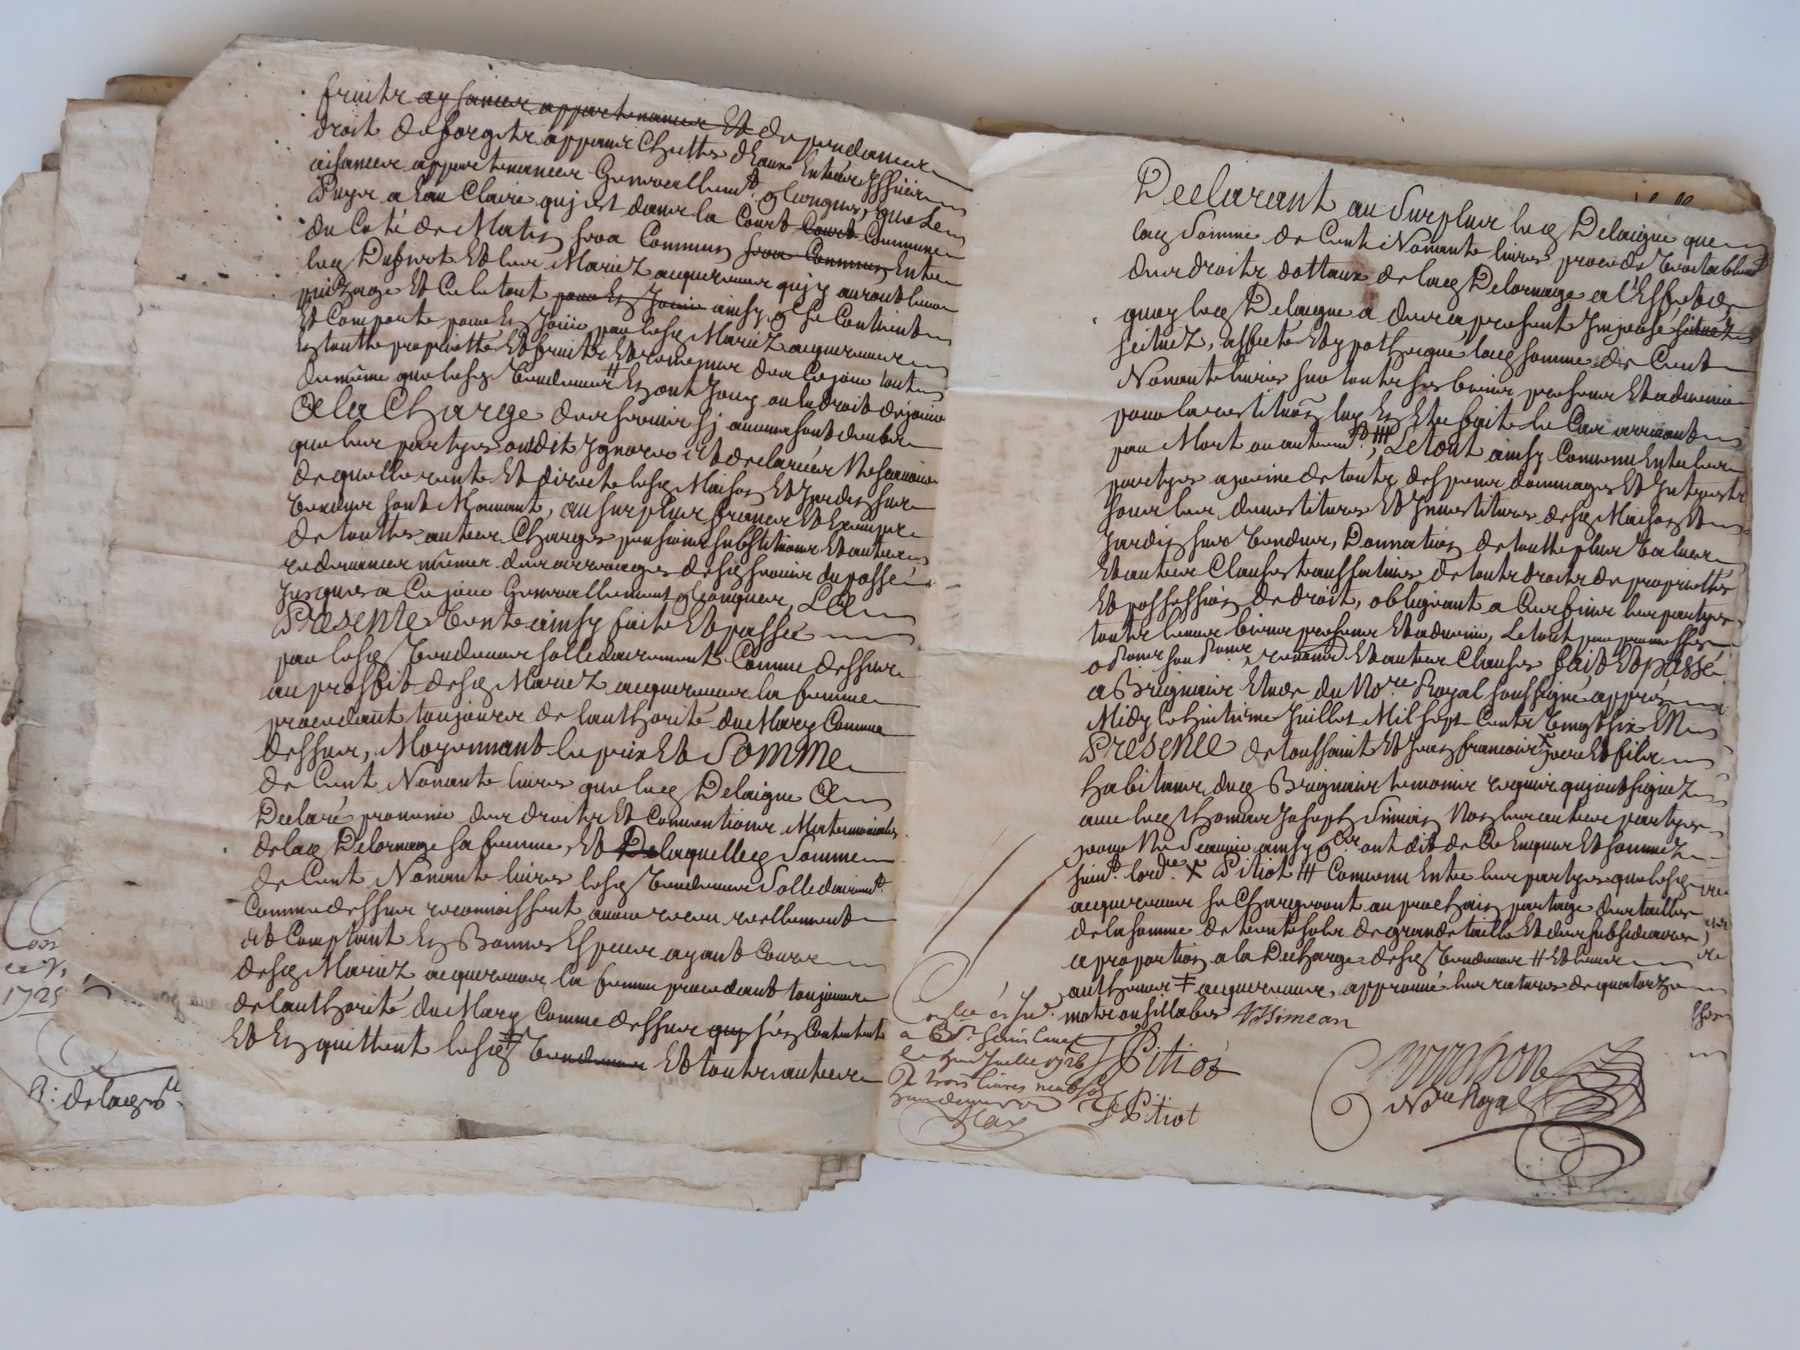 fruits aysances appartenances Et dependances
droit de forgets appans Chuttes d'Eaux Entrées Yssües
aisances appartenances Generallemt. qlconques, que Le
Puys a Eau Claire qui est dans la Court Court Commune
du Coté de Matin sera Commun sera Commun Entre
les Mariez acquereurs qui y auront leur
puizage Et Ce le tout pour En Jouir ainsy q. se Contient
Et Comporte pour En Jouir par lesd. Mariez acquereurs
En toutte proprietté Et fruits Et revenus des Ce jour tout
de même que lesd. Vendeurs En ont Jouy ou eu droit de jouir
A la Charge des servis sy aucuns sont deubs
que les partyes ont dit Ignorer Et declarées Ne scavoir
de quelle rente Et directe lesd. Maison Et Jardin sus
Vendus sont Mouvant, au surplus francs Et Exempts
de touttes autres Charges pensions substitutions Et autres
redevances même des arrerages desd. servis du passé
Jusques a Ce jour Generallement qlconques, La
Presente Vente ainsy faite Et passée
par lesd. Vendeurs sollidairement Comme dessus
au proffit desd. Mariez acquereurs la femme
procedant toujours de l'authorité du Mary Comme
dessus, Moyennant le prix Et Somme
de Cent Nonante livres que led. Delaigue A
Declaré provenir des droits Et Conventions Matrimoniales
de lad. Delornage sa femme, Et De laquelle Somme
de Cent Nonante livres lesd. Vendeurs Sollidairemt.
Comme dessus reconnoissent avoir receu reellement
et Comptant En Bonnes Especes ayant Cours
desd. Mariez acquereurs la femme procedant toujours
de l'authorité du Mary Comme dessus s'en Contentent
Et En quittent lesd. Vendeurs Et tous autres
1725
Declarant au Surplus led. Delaigue que
lad. Somme de Cent Nonante livres procede Veritablemt.
des droits dottaux de lad. Delornage a l'Effet de
quoy led. Delaigue a des a present Imposé situéz
scituéz, affecté Et ypothequé lad. somme de Cent
Nonante livres sur touts ses biens presens Et advenir
pour la restitution luy En Etre faite le Cas arrivant
par Mort ou autremt., Le tout ainsy Convenu Entre les
partyes a peine de touts despens dommages Et Interests
sous les devestitures Et Investitures desd. Maison Et
Jardin sus Vendus, Donnation de toutte plus Valeur
Et autres Clauses translatives de touts droits de proprietté
Et possession de droit, obligeant a Ces fins les partyes
touts leurs biens presens Et advenir, Le tout par promesses
Et autres Clauses fait Et Passé
a Brignais Etude du Nore. Royal soussigné appres
Midy le huitieme Juillet Mil sept Cents Vingt six En
Presence de toussaint Et Jean francois pere Et fils
habitans dud. Brignais temoins requis qui ont signéz
avec led. thomas Joseph Simian Non les autres partyes
pour Ne Scavoir ainsy qu'ils ont dit de Ce Enquis Et sommez
suivt. lorde. x Pitiot Convenu Entre les partyes que lesd.
acquereurs se Chargeront au prochain partage des tailles
de la somme de trente sols de grande taille Et des subsidiaires
a proportion a la Decharge desd. Vendeurs Et leurs
autheurs acquereurs, approuvé les ratures de quatorze
mots ou sillabes Simean
Pitiot
Pitiot
Nore. Royal